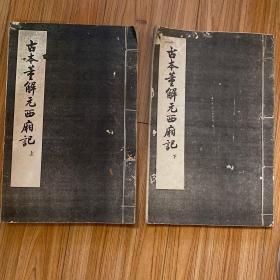 古本董解元西廂記 上
古本董解元西廂記 下